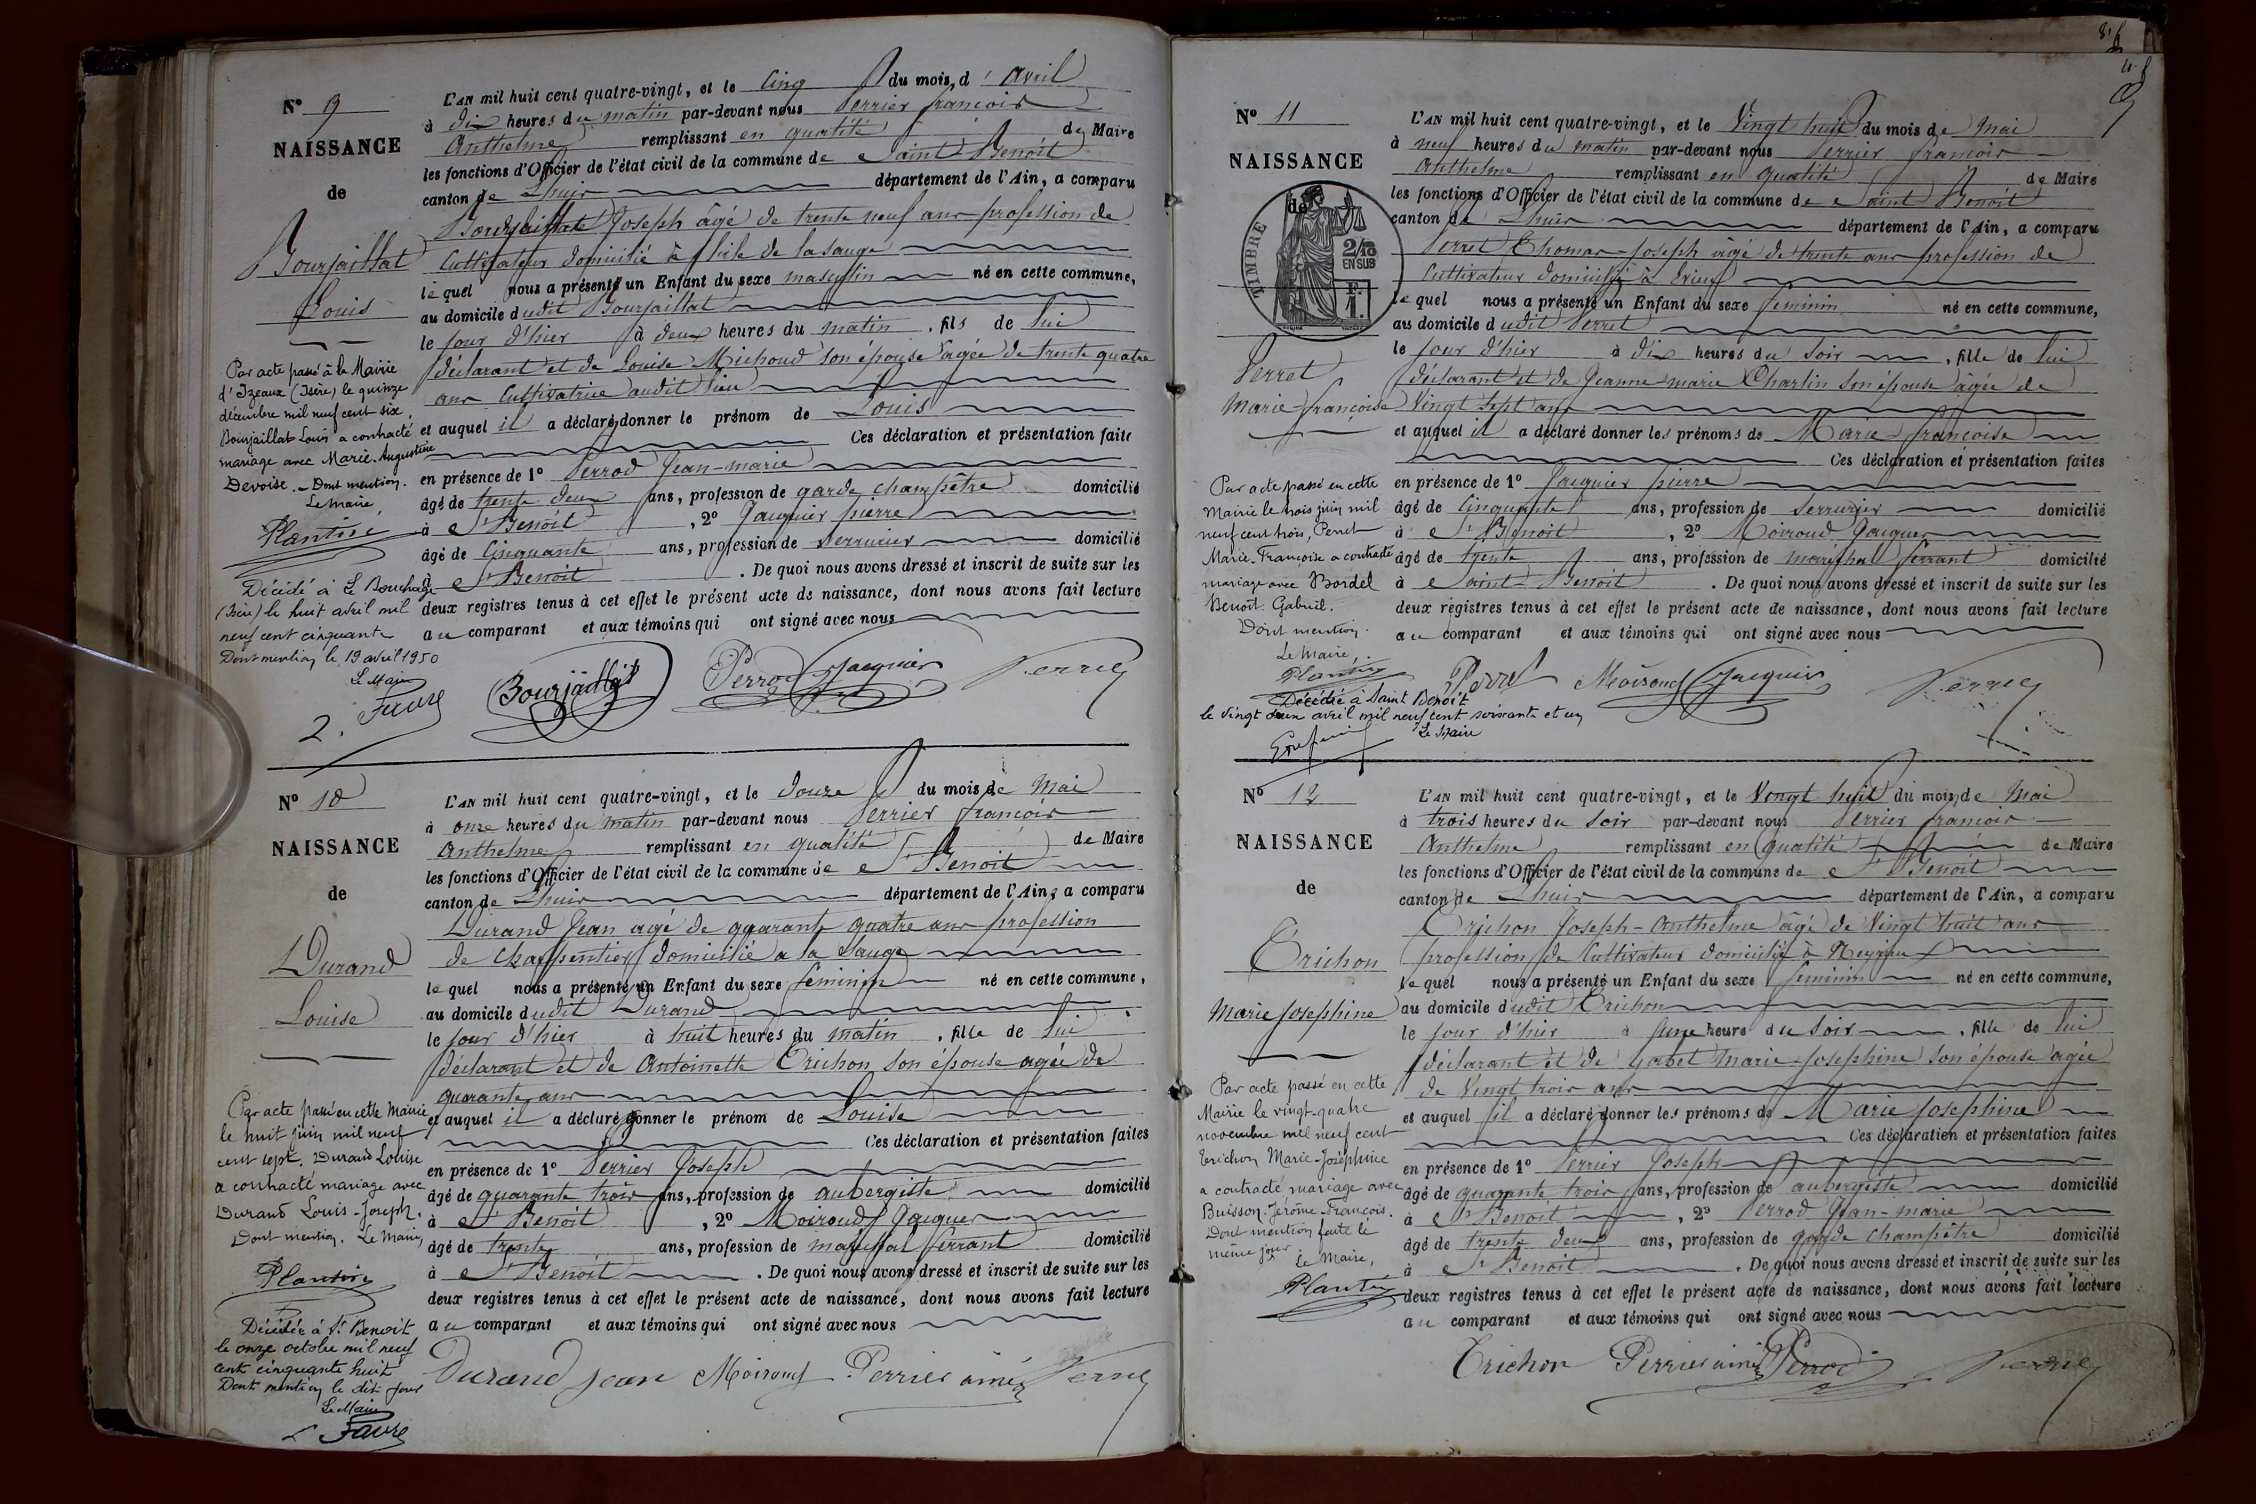 N° 9
NAISSANCE
de
Bourjaillat
Louis
Par acte passé à la Mairie
d'Izeaux (Isère) le quinze
décembre mil neuf cent six,
Bourjaillat Louis a contracté
mariage avec Marie-Augustine
Devoise. - Dont mention.
Le Maire,
Plantin
Décédé à Le Bouchage
(Isère) le huit avril mil
neuf cent cinquante
Dont mention le 19 avril 1950
Le Maire
Favre
2.
L'AN mil huit cent quatre-vingt, et le Cinq du mois, d'avril
à dix heures du matin par-devant nous Perrier françois
Anthelme remplissant en qualité de Maire
les fonctions d'Officier de l'état civil de la commune de Saint Benoît
canton de Lhuis département de l'Ain, a comparu
Bourjaillat Joseph âgé de trente neuf ans profession de
Cultivateur domicilié à l'isle de la sauge
lequel nous a présenté un Enfant du sexe masculin né en cette commune,
au domicile dudit Bourjaillat
le jour d'hier à deux heures du matin, fils de lui
déclarant et de Louise Michoud son épouse âgée de trente quatre
ans Cultivatrice audit lieu
et auquel il a déclaré donner le prénom de Louis
Ces déclaration et présentation faite
en présence de 1° Perrod Jean-marie
âgé de trente deux ans, profession de garde champêtre domicilié
à St Benoit, 2° Jacquier pierre
âgé de Cinquante ans, profession de serrurier domicilié
à St Benoit. De quoi nous avons dressé et inscrit de suite sur les
deux registres tenus à cet effet le présent acte de naissance, dont nous avons fait lecture
au comparant et aux témoins qui ont signé avec nous
Bourjaillat Perrod Jacquier Perrier
N° 10
NAISSANCE
de
Durand
Louise
Par acte passé en cette Mairie
le huit juin mil neuf
cent sept. Durand Louise
a contracté mariage avec
Durand Louis-Joseph.
Dont mention. Le Maire,
Plantin
Décédée à St Benoit
le onze octobre mil neuf
cent cinquante huit
Dont mention le dit jour
Le Maire
Favre
L'AN mil huit cent quatre-vingt, et le douze du mois de Mai
à onze heures du matin par-devant nous Perrier françois
Anthelme remplissant en qualité de Maire
les fonctions d'Officier de l'état civil de la commune de St Benoit
canton de Lhuis département de l'Ain, a comparu
Durand Jean âgé de quarante quatre ans profession
de Charpentier domicilié a la Sauge
lequel nous a présenté un Enfant du sexe féminin né en cette commune,
au domicile dudit Durand
le jour d'hier à huit heures du matin, fille de lui
déclarant et de Antoinette Trichon son épouse agée de
quarante ans
et auquel il a déclaré donner le prénom de Louise
Ces déclaration et présentation faites
en présence de 1° Perrier Joseph
âgé de quarante trois ans, profession de aubergiste domicilié
à St Benoit, 2° Moiroud Jacques
âgé de trente ans, profession de maréchal ferrant domicilié
à St Benoit. De quoi nous avons dressé et inscrit de suite sur les
deux registres tenus à cet effet le présent acte de naissance, dont nous avons fait lecture
au comparant et aux témoins qui ont signé avec nous
Durand Jean Moiroud Perrier aimé Perrier
N° 11
NAISSANCE
de
TIMBRE
2/10
EN SUS
F.
1.
Perret
Marie françoise
Par acte passé en cette
Mairie le trois juin mil
neuf cent trois, Perret
Marie-Françoise a contracté
mariage avec Bordel
Benoît Gabriel.
Dont mention.
Le Maire,
Plantin
Décédée à Saint Benoit
le vingt deux avril mil neuf cent soixante et un
Le Maire
L'AN mil huit cent quatre-vingt, et le Vingt huit du mois de Mai
à neuf heures du matin par-devant nous Perrier françois
Anthelme remplissant en qualité de Maire
les fonctions d'Officier de l'état civil de la commune de Saint Benoît
canton de Lhuis département de l'Ain, a comparu
Perret Thomas-Joseph âgé de trente ans profession de
Cultivateur domicilié à
lequel nous a présenté un Enfant du sexe feminin né en cette commune,
au domicile dudit Perret
le jour d'hier à dix heures du soir, fille de lui
déclarant et de Jeanne marie Charlin son épouse âgée de
Vingt sept ans
et auquel il a déclaré donner les prénoms de Marie françoise
Ces déclaration et présentation faites
en présence de 1° Jacquier pierre
âgé de Cinquante ans, profession de Serrurier domicilié
à St Benoit, 2° Moiroud Jacques
âgé de trente ans, profession de maréchal ferrant domicilié
à Saint-Benoit. De quoi nous avons dressé et inscrit de suite sur les
deux registres tenus à cet effet le présent acte de naissance, dont nous avons fait lecture
au comparant et aux témoins qui ont signé avec nous
Perret Moiroud Jacquier Perrier
N° 12
NAISSANCE
de
Trichon
Marie Josephine
Par acte passé en cette
Mairie le vingt-quatre
novembre mil neuf cent
Trichon Marie-Joséphine
a contracté mariage avec
Buisson Jérôme-François.
Dont mention faite le
même jour
Le Maire,
Plantin
L'AN mil huit cent quatre-vingt, et le Vingt huit du mois de Mai
à trois heures du soir par-devant nous Perrier françois
Anthelme remplissant en qualité de Maire
les fonctions d'Officier de l'état civil de la commune de St Benoit
canton de Lhuis département de l'Ain, a comparu
Trichon Joseph-Anthelme âgé de Vingt huit ans
profession de Cultivateur domicilié à Neyrieu
lequel nous a présenté un Enfant du sexe féminin né en cette commune,
au domicile dudit Trichon
le jour d'hier à une heure du soir, fille de lui
déclarant et de Gabet Marie-Josephine son épouse agée
de Vingt trois ans
et auquel il a déclaré donner les prénoms de Marie Josephine
Ces déclaration et présentation faites
en présence de 1° Perrier Joseph
âgé de quarante trois ans, profession de aubergiste domicilié
à St Benoit, 2° Perrod Jean-marie
âgé de trente deux ans, profession de garde champêtre domicilié
à St Benoit. De quoi nous avons dressé et inscrit de suite sur les
deux registres tenus à cet effet le présent acte de naissance, dont nous avons fait lecture
au comparant et aux témoins qui ont signé avec nous
Trichon Perrier aimé Perrod Perrier